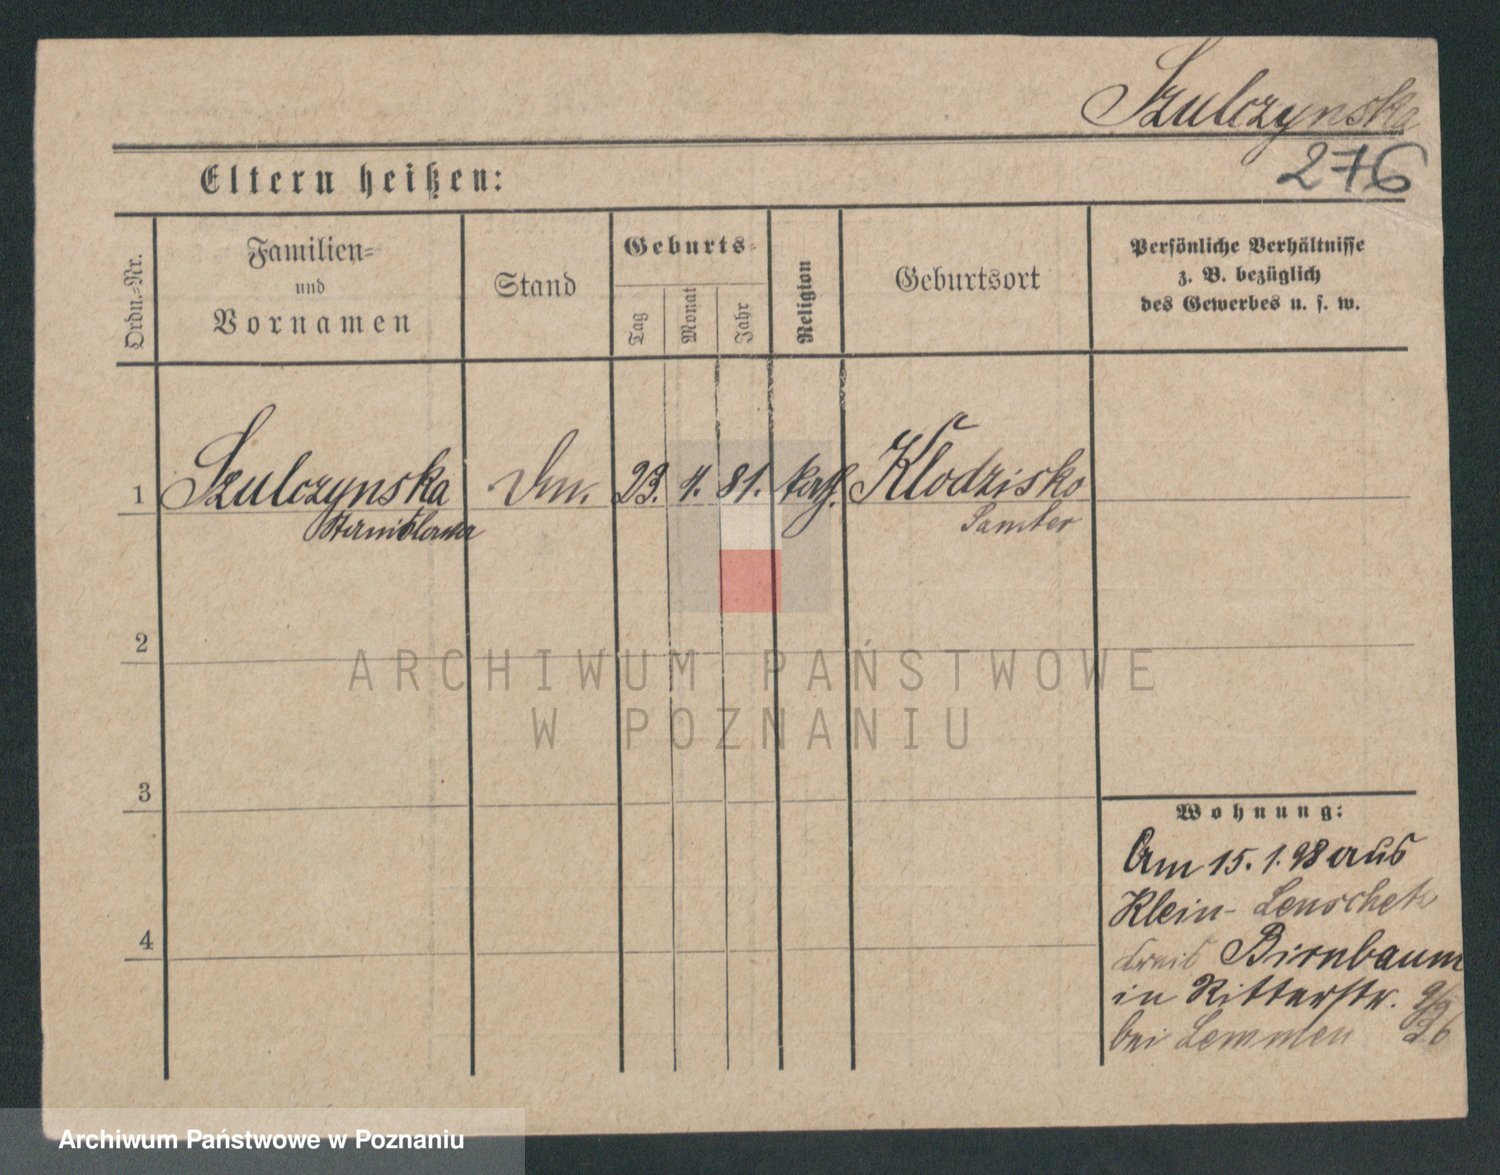 Szulczynska
276
Eltern heißen:
Ordn.-Nr.
Familien- und Vornamen
Stand
Geburts-
Tag
Monat
Jahr
Religion
Geburtsort
Persönliche Verhältnisse
z. B. bezüglich
des Gewerbes u. s. w.
1 Szulczynska 23. 4. 81. kath. Klodzisko
Stanislawa Samter
2
ARCHIWUM PAŃSTWOWE
W POZNANIU
3
Wohnung:
Am 15. 1. 98 aus
Klein-
4
Kreis Birnbaum
in Ritterstr.
bei Lemmen 26
Archiwum Państwowe w Poznaniu